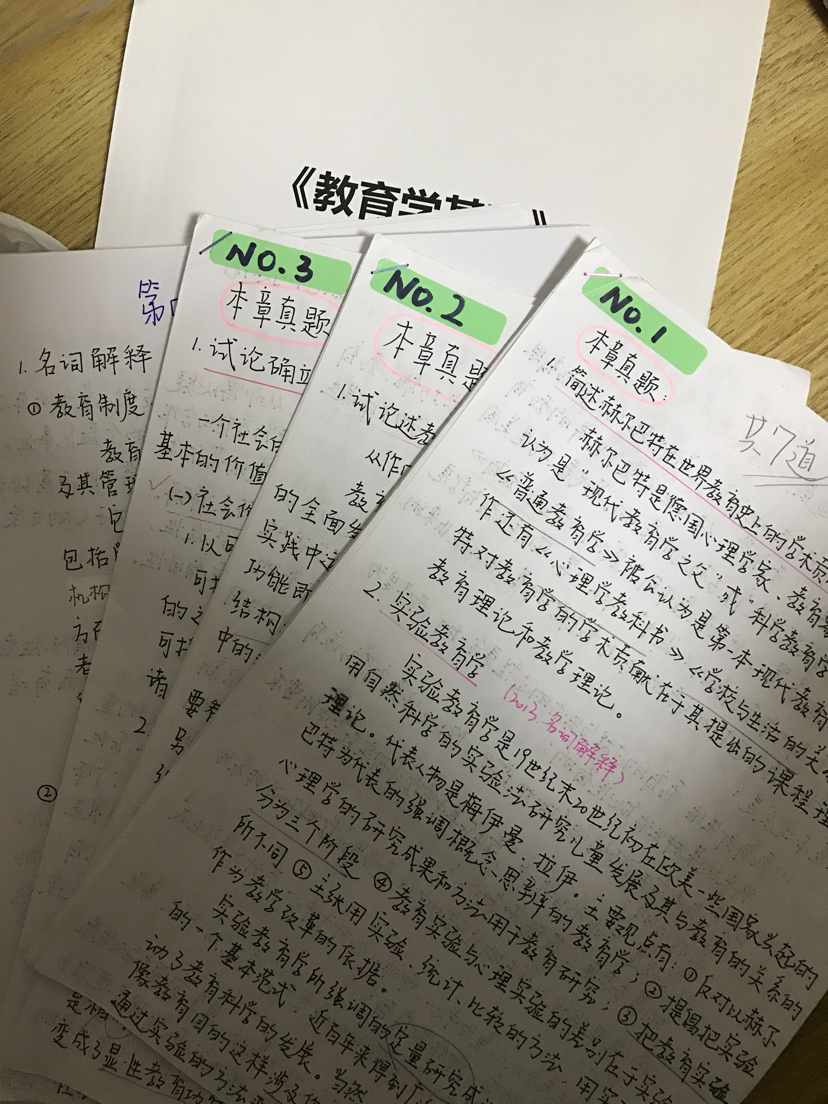 《教育学基
NO.3
本章真题
1.试论确立
一个社会的
基本的价值
(一)社会
1.以
NO.2
本章真题
1.试论述教
从作
教
的全面发
实践中
功能
结构
中的
第
1.名词解释
①教育制度
教育
及其管理
包括
机构
②
NO.1
本章真题:
共7道
1.简述赫尔巴特在世界教育史上的学术贡献
赫尔巴特是德国心理学家、教育家
认为是“现代教育学之父”或“科学教育学
《普通教育学》被公认为是第一本现代教育
作还有《心理学教科书》《学校与生活的关
特对教育学的学术贡献在于其提出的课程理
教育理论和教学理论。
2.实验教育学 (2013名词解释)
实验教育学是19世纪末20世纪初在欧美一些国家兴起的
用自然科学的实验法研究儿童发展及其与教育的关系的
理论。代表人物是梅伊曼、拉伊。主要观点有:①反对以赫尔
巴特为代表的强调概念、思辨的教育学;②提倡把实验
心理学的研究成果和方法用于教育研究;③把教育实验
分为三个阶段 ④教育实验与心理实验的差别在于实验
所不同 ⑤主张用实验、统计、比较的方法, 用实
作为教学改革的依据。
实验教育学所强调的定量研究成
的一个基本范式,近百年来得到了
动了教育科学的发展。当然
像教育目的这样涉及
通过实验的方法
变成了显性教育功